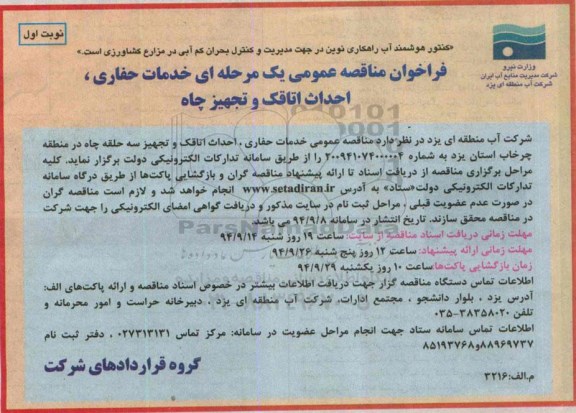 نوبت اول
«کنتور هوشمند آب راهکاری نوین در جهت مدیریت و کنترل بحران کم آبی در مزارع کشاورزی است.»
وزارت نیرو
شرکت مدیریت منابع آب ایران
شرکت آب منطقه ای یزد
فراخوان مناقصه عمومی یک مرحله ای خدمات حفاری ،
احداث اتاقک و تجهیز چاه
شرکت آب منطقه ای یزد در نظر دارد مناقصه عمومی خدمات حفاری ، احداث اتاقک و تجهیز سه حلقه چاه در منطقه
چرخاب استان یزد به شماره ۲۰۰۹۴۱۰۷۴۰۰۰۰۰۴ را از طریق سامانه تدارکات الکترونیکی دولت برگزار نماید. کلیه
مراحل برگزاری مناقصه از دریافت اسناد تا ارائه پیشنهاد مناقصه گران و بازگشایی پاکت‌ها از طریق درگاه سامانه
تدارکات الکترونیکی دولت«ستاد» به آدرس www.setadiran.ir انجام خواهد شد و لازم است مناقصه گران
در صورت عدم عضویت قبلی ، مراحل ثبت نام در سایت مذکور و دریافت گواهی امضای الکترونیکی را جهت شرکت
در مناقصه محقق سازند. تاریخ انتشار در سامانه ۹۴/۹/۸ می باشد.
مهلت زمانی دریافت اسناد مناقصه از سایت: ساعت ۱۹ روز شنبه ۹۴/۹/۱۴
مهلت زمانی ارائه پیشنهاد: ساعت ۱۲ روز پنج شنبه ۹۴/۹/۲۶
زمان بازگشایی پاکت‌ها:ساعت ۱۰ روز یکشنبه ۹۴/۹/۲۹
اطلاعات تماس دستگاه مناقصه گزار جهت دریافت اطلاعات بیشتر در خصوص اسناد مناقصه و ارائه پاکت‌های الف:
آدرس یزد ، بلوار دانشجو ، مجتمع ادارات، شرکت آب منطقه ای یزد ، دبیرخانه حراست و امور محرمانه و
تلفن ۳۸۳۵۸۰۲۰-۰۳۵
اطلاعات تماس سامانه ستاد جهت انجام مراحل عضویت در سامانه: مرکز تماس ۰۲۷۳۱۳۱۳۱ ، دفتر ثبت نام
۸۸۹۶۹۷۳۷و۸۵۱۹۳۷۶۸
گروه قراردادهای شرکت
م.الف:۳۲۱۶